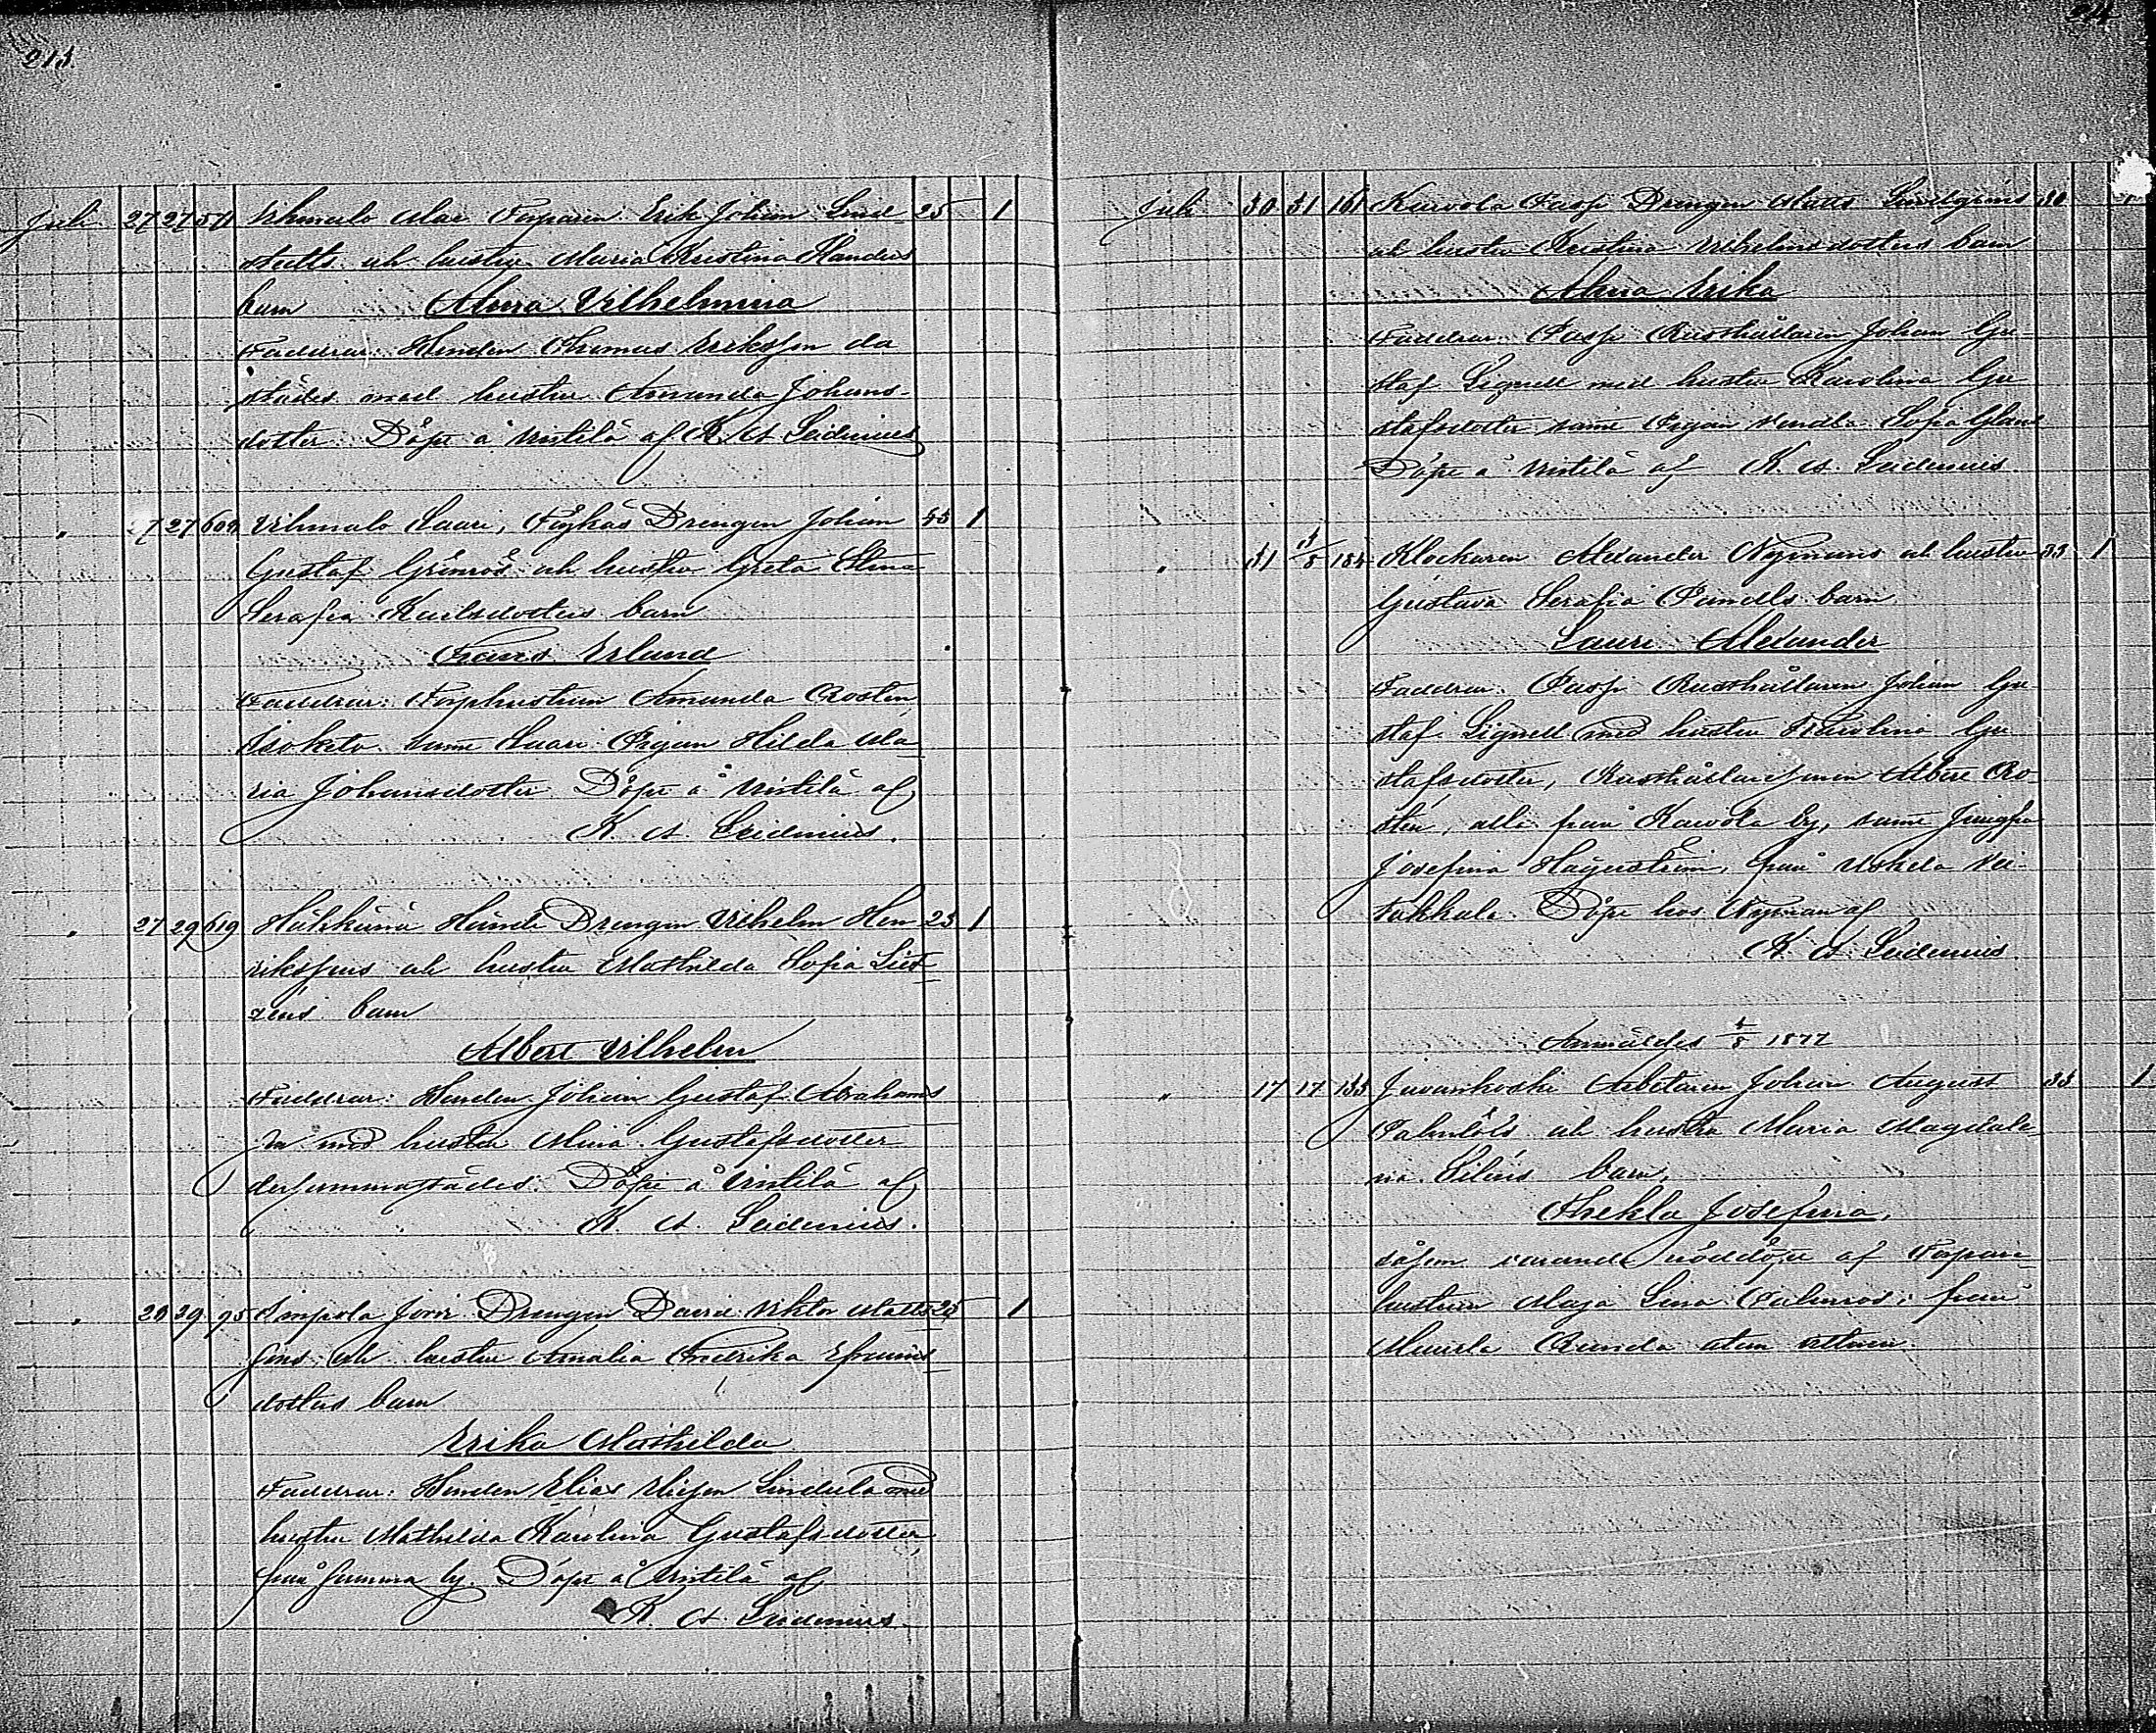 213.
Juli 27 27 571 Vihmalo Torparen Erik Johan Lind 25 1
stedts och hustru Maria Kristina Slanders
barn Alma Vilhelmina
Faddrar: Bonden Thomas Eriksson da
städes med hustru Amanda Johans-
dotter. Döpt å Anstila af K. A. Leidenius
" 27 27 604 Vihmalo Lauri, Drengen Johan 35 1
Gustaf Grönros och hustru Greta Stina
Serafia Karlsdotters barn
Frans Erland
Faddrar: Torphustrun Amanda Rosten,
Isoketo samt Lauri Pigan Hilda Ma
ria Johansdotter Döpt å Anstila af
K. A. Leidenius.
" 27 29 619 Drengen Vilhelm Hen 23 1
rikssons och hustru Mathilda Sofia
barn
Albert Vilhelm
Faddrar: Bonden Johan Gustaf Abrahams
son med hustru Mina Gustafsdotter
dersammastädes. Döpt å Anstila af
K. A. Leidenius.
" 29 29 95 Simpola Jovir Drengen David Viktor Matts 25 1
sons och hustru Amalia Fredrika Efraims
dotters barn
Erika Mathilda
Faddrar: Bonden Elias Eliasson Lindula med
hustru Mathilda Karolina Gustafsdotter,
från samma by. Döpt å Anstila af
K. A. Leidenius.
214
Juli 30 31 161 Karvola Pasp Drengen Matts Lindgrens 30 1
och hustru Kristina Vilhelmsdotters barn
Alma Erika
Faddrar: Pasp Rusthållaren Johan Gu-
staf Signell med hustru Karolina Gu
stafsdotter samt Pigan Vendla Sofia Glans
Döpt å Anstila af K. A. Leidenius
" 31 Klockaren Alexander Nymans och hustru 33 1
Gustava Serafia Pandels barn
Lauri Alexander
Faddrar: Pasp Rusthållaren Johan Gu-
staf Signell med hustru Karolina Gu
stafsdotter, Albert Ro
sten, alla från Karvola by, samt Jungfru
Josefina Hagerström, från Uskela
Döpt hos Nyman af
K. A. Leidenius
Anmäldes 1877
" 17 17 133 Juvankoski Arbetaren Johan August 33 1
och hustru Maria Magdale
na barn,
Thekla Josefina,
såsom varande nöddöpt af Torpare
hustrun Maja Lena från
Muurla utan vittnen.